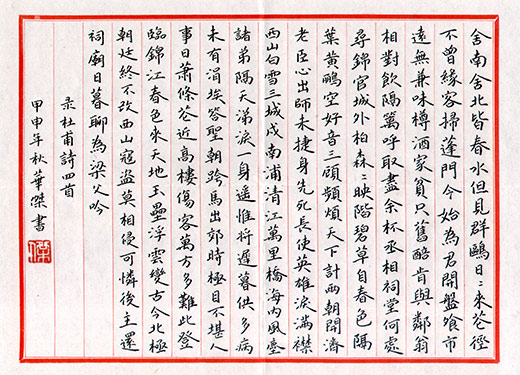 舍南舍北皆春水但見群鷗日〻來花徑
不曾緣客掃蓬門今始為君開盤飧市
遠無兼味樽酒家貧只舊醅肯與鄰翁
相對飲隔籬呼取盡余杯丞相祠堂何處
尋錦官城外柏森〻映階碧草自春色隔
葉黃鸝空好音三顧頻煩天下計兩朝開濟
老臣心出師未捷身先死長使英雄淚滿襟
西山白雪三城戍南浦清江萬里橋海內風塵
諸弟隔天涯淚身遙惟將遲暮供多病
未有涓埃答聖朝跨馬出郊時極目不堪人
事日蕭條花近高樓傷客萬方多難此登
臨錦江春色來天地玉壘浮雲變古今北極
朝廷終不改西山寇盜莫相侵可憐後主還
祠廟日暮聊為梁父吟
录杜甫詩四首
甲申年秋華傑書